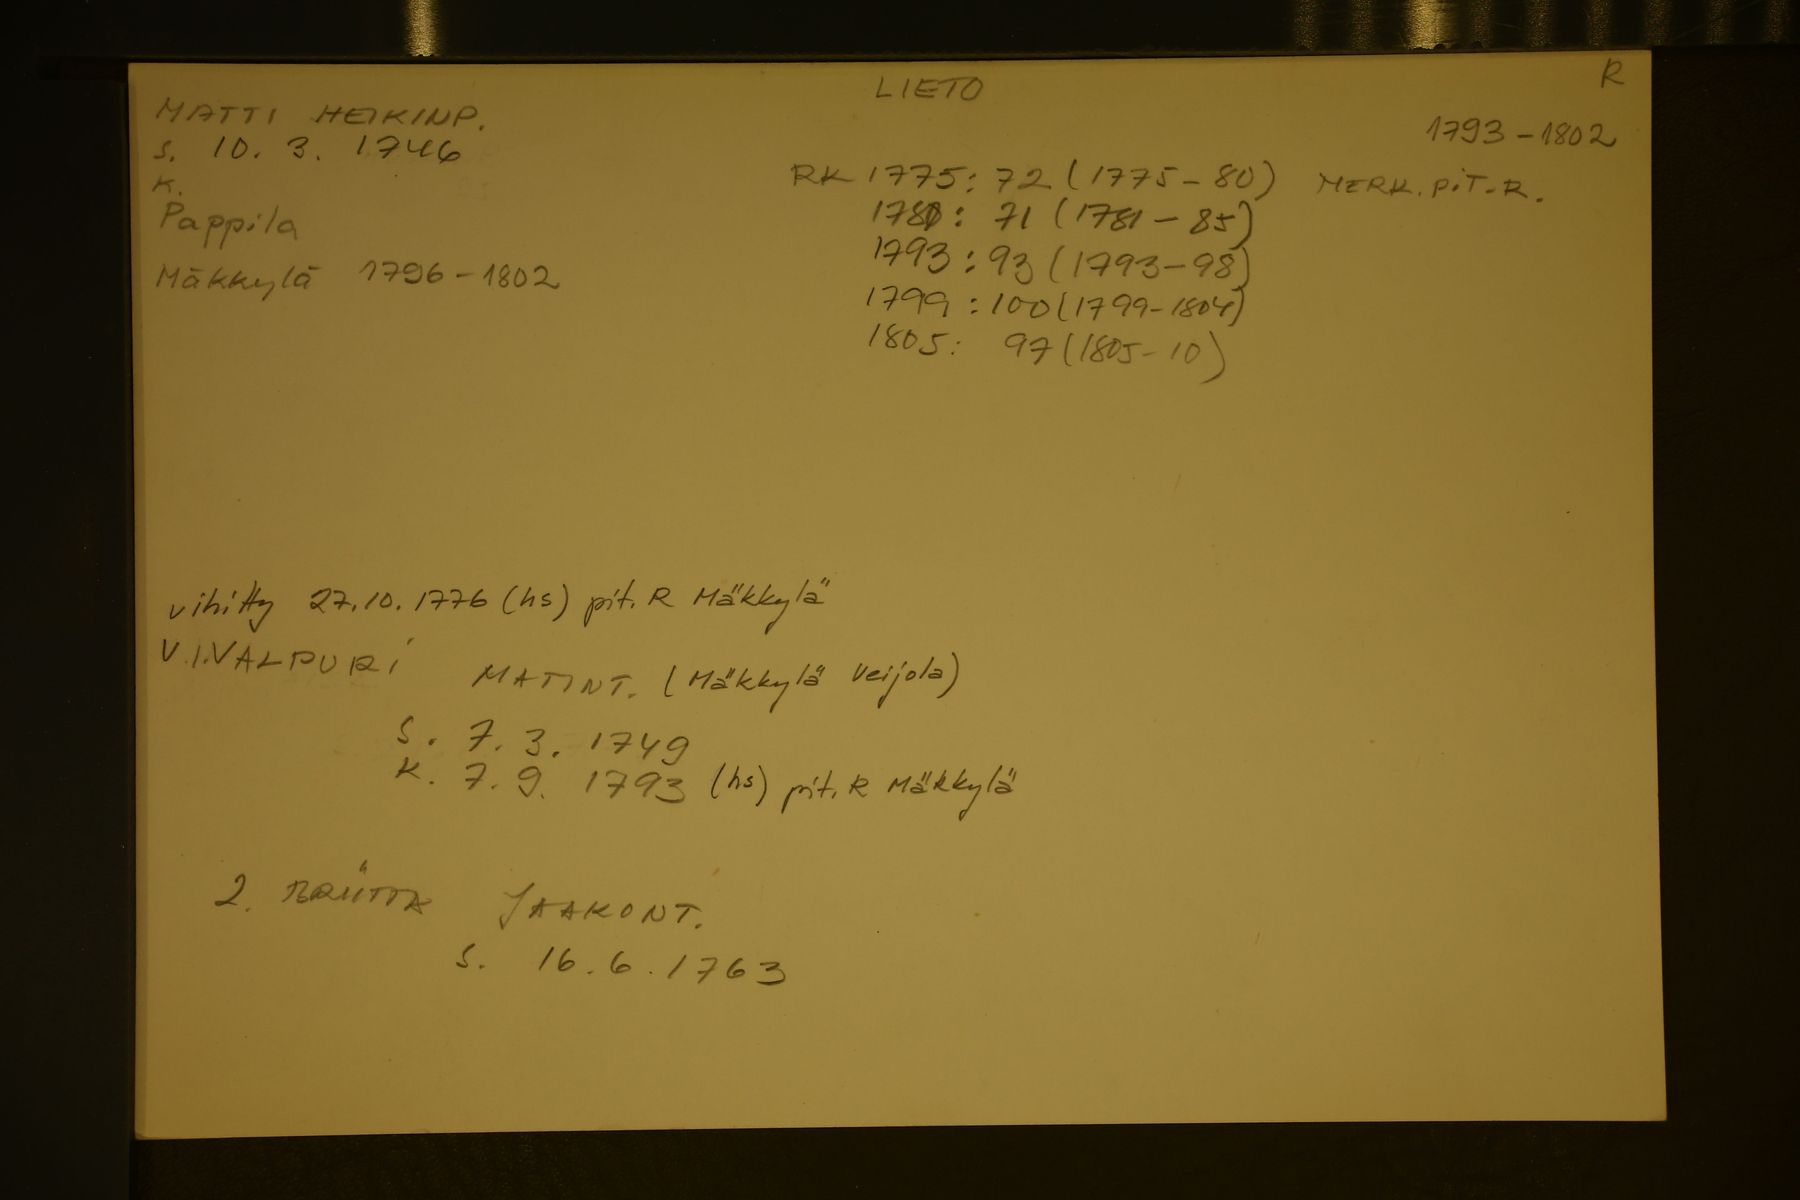 LIETO
R
MATTI HEIKINP.
1793-1802
s. 10. 3. 1746
RK 1775: 72 (1775-80) MERK. PIT. R.
K.
1781: 71 (1781-85)
Pappila
1793: 93 (1793-98)
Mäkkylä 1796-1802
1799: 100 (1799-1804)
1805: 97 (1805-10)
vihitty 27.10.1776 (hs) pit. R Mäkkylä
V. 1. VALPURI MATINT. (Mäkkylä Veijola)
S. 7. 3. 1749
K. 7. 9. 1793 (hs) pit. R Mäkkylä
2. JAAKONT.
S. 16. 6. 1763